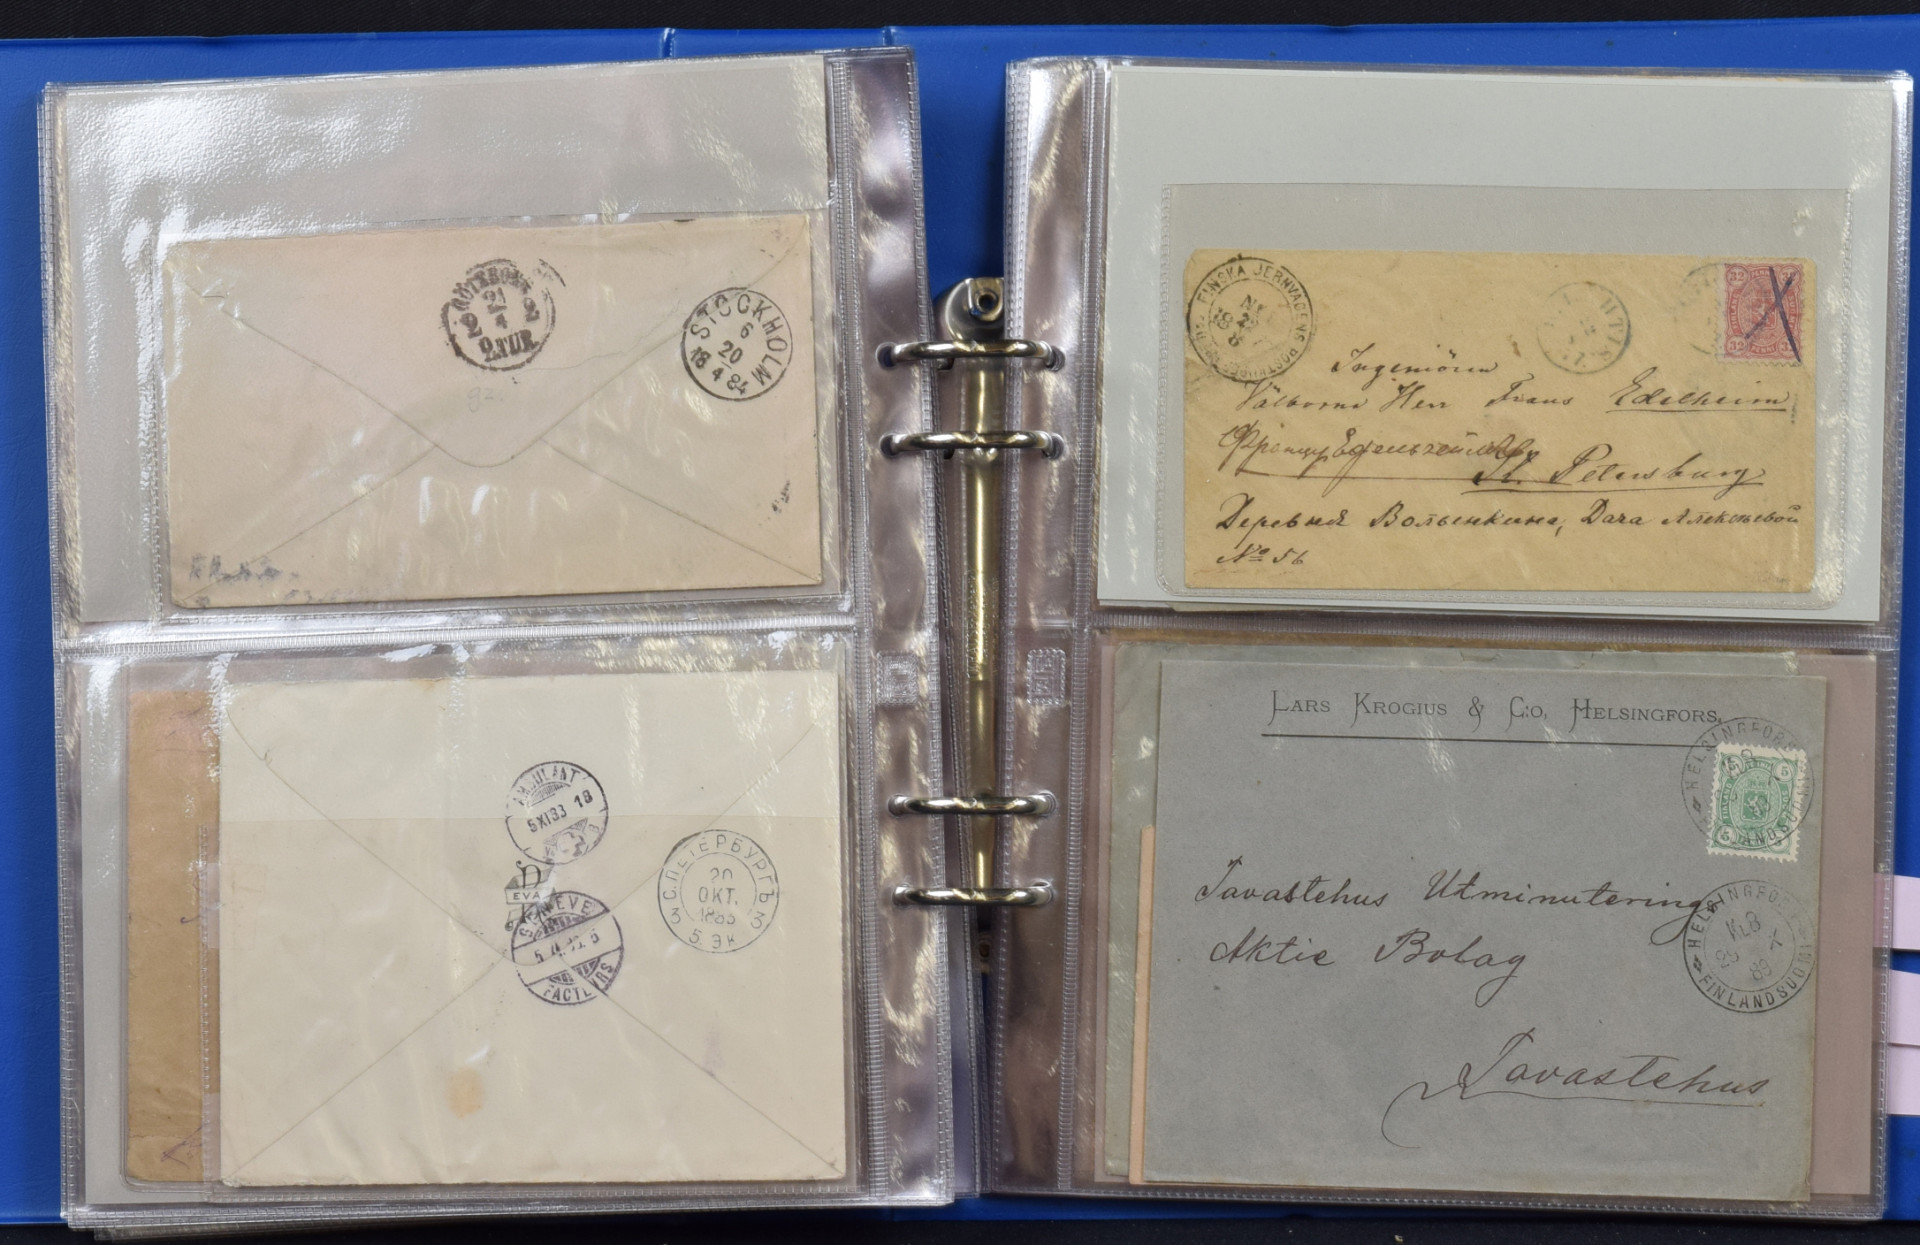 GÖTEBORG
21
2 4 2
2.TUR
STOCKHOLM
6
20
18 4 84
92.
AMBULANT
5 XI 83 18
EVA
GENÈVE
FACTEURS
С.ПЕТЕРБУРГЪ
20
ОКТ.
3 3
5. ЭК
FINSKA JERNVÄGENS POSTKUPÉ
32 32
PENNI
32
PENNI
Ingeniören
Välborne Herr Frans Edelheim
St. Petersburg
Деревня Волынкина, Дача Алексѣевой
№ 56
LARS KROGIUS & C:o, HELSINGFORS.
HELSINGFORS
FINLAND SUOMI
5 5
5
Tavastehus Utminutering
Aktie Bolag
HELSINGFORS
KL 8
25 X
89
FINLAND SUOMI
Tavastehus